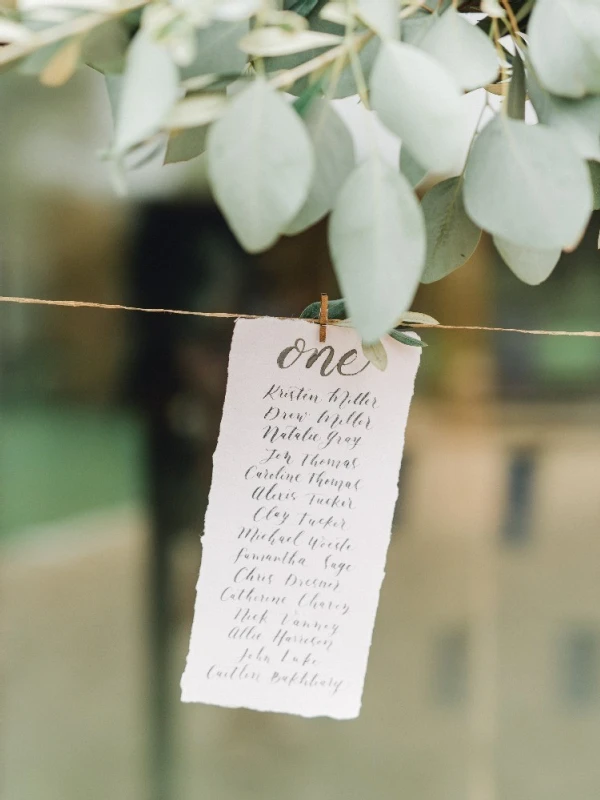 one
Kristen Miller
Drew Miller
Natalie Gray
Jon Thomas
Caroline Thomas
Alexis Tucker
Clay Tucker
Michael
Samantha Sage
Chris Dresner
Catherine
Nick Vanney
Allie Harrison
John Luke
Caitlin Bakhtiary